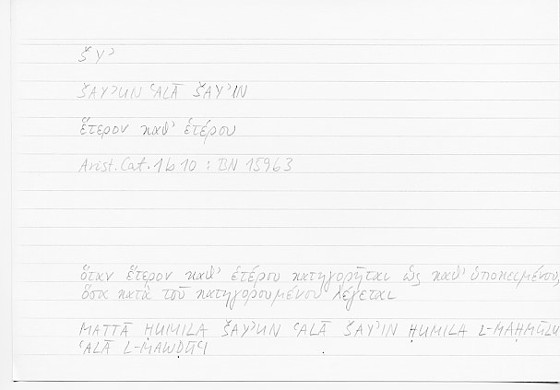 ŠYʾ
ŠAYʾUN ʿALĀ ŠAYʾIN
ἕτερον καθ' ἑτέρου
Arist. Cat. 1b10 : BN 15963
ὅταν ἕτερον καθ' ἑτέρου κατηγορῆται ὡς καθ' ὑποκειμένου,
ὅσα κατὰ τοῦ κατηγορουμένου λέγεται
MATTĀ ḤUMILA ŠAYʾUN ʿALĀ ŠAYʾIN ḤUMILA L-MAḤMŪLU
ʿALĀ L-MAWḌŪʿI